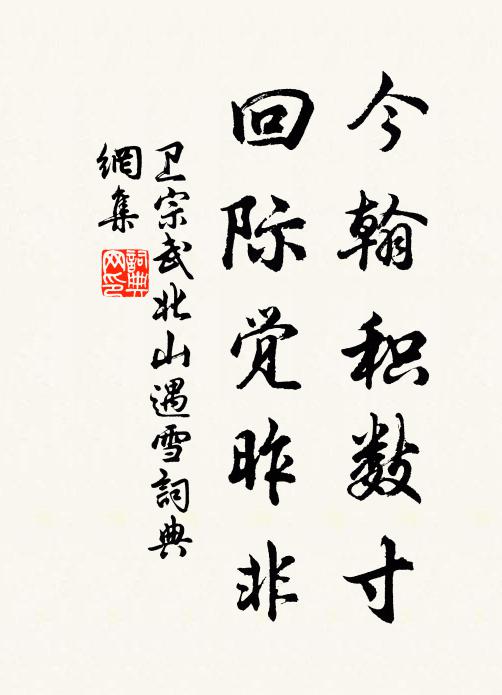 今翰积数寸
回际觉昨非
卫宗武北山遇雪詞典
網集
詞典
网印